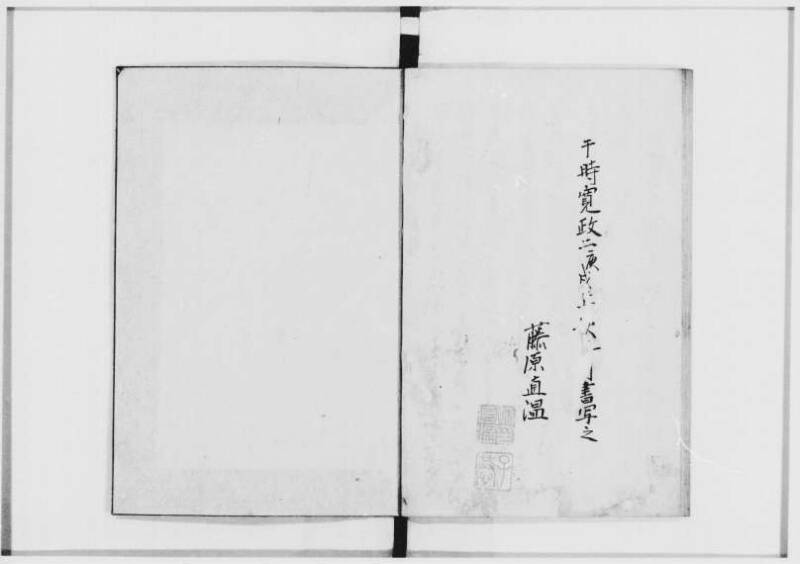 于時寛政二庚戌年秋 書写之
藤原直温